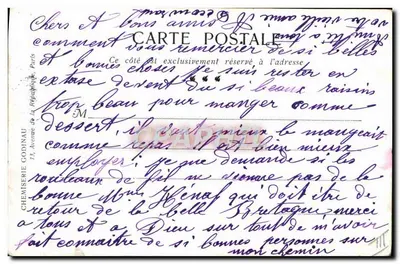 Chers et bons amis
comment vous remercier de si belles
CARTE POSTALE
Ce côté est exclusivement réservé à l'adresse
et bonnes choses je suis rester en
extase devant du si beaux raisins
trop beau pour manger comme
M
dessert, il faut mieux le mangeait
comme repas il est bien mieux
employer! je me demande si les
rouleaux de fil ne vienne pas de la
bonne Mme Hénaf qui doit être de
retour de la belle Bretagne, merci
a tous et a Dieu sur tout de m'avoir
fait connaitre de si bonnes personnes sur
mon chemin
CHEMISERIE GODINAU
11, Avenue de la République, Paris
votre vieille amie